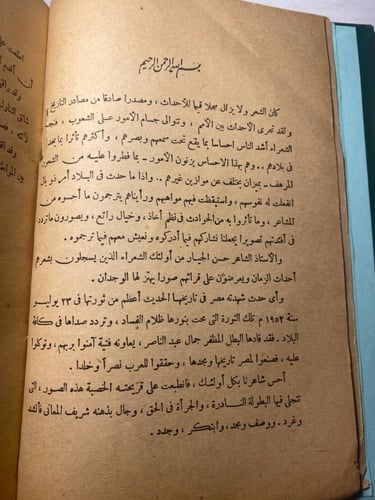 بسم الله الرحمن الرحيم
كان الشعر ولا يزال سجلا قيما للأحداث ، ومصدرا صادقا من مصادر التاريخ
ولقد تجرى الأحداث بين الأمم ، وتتوالى جسام الأمور على الشعوب ، فنجد
الشعراء أشد الناس احساسا بما يقع تحت سمعهم وبصرهم ، وأكثرهم تأثرا بما يجد
فى بلادهم .. وهم بهذا الاحساس يزنون الأمور ـ بما فطروا عليه من الشعور
المرهف ـ بميزان يختلف عن موازين غيرهم .. واذا ما حدث فى البلاد أمر ذو بال
انفعلت له نفوسهم ، واستيقظت فيهم مواهبهم ورأيناهم يترجمون ما أحسوه من
المشاعر ، وما تأثروا به من الحوادث فى نظم أخاذ ، وخيال رائع ، ويصورون ما تردد
فى أفئدتهم تصويرا يجعلنا نشاركهم فيما أدركوه ونعيش معهم فيما ترجموه .
والأستاذ الشاعر حسن الجيار من أولئك الشعراء الذين يسجلون بشعرهم
أحداث الزمان ويعرضون على قرائهم صورا يهتز لها الوجدان .
وأى حدث شهدته مصر فى تاريخها الحديث أعظم من ثورتها فى ٢٣ يوليو
سنة ١٩٥٢ م تلك الثورة التى محت بنورها ظلام الفساد ، وتردد صداها فى كافة
البلاد . فقد قادها البطل المظفر جمال عبد الناصر ، يعاونه فتية آمنوا بربهم ، وتوكلوا
عليه ، فصنعوا لمصر تاريخها ومجدها ، وحققوا للعرب نصرا وخلدا .
أحس شاعرنا بكل أولئك ، فانطبعت على قريحته الخصبة هذه الصور ، التى
تتجلى فيها البطولة النادرة ، والجرأة فى الحق ، وجال بذهنه شريف المعانى فأنشد
وغرد . ووصف ومجد ، وابتكر ، وجدد .